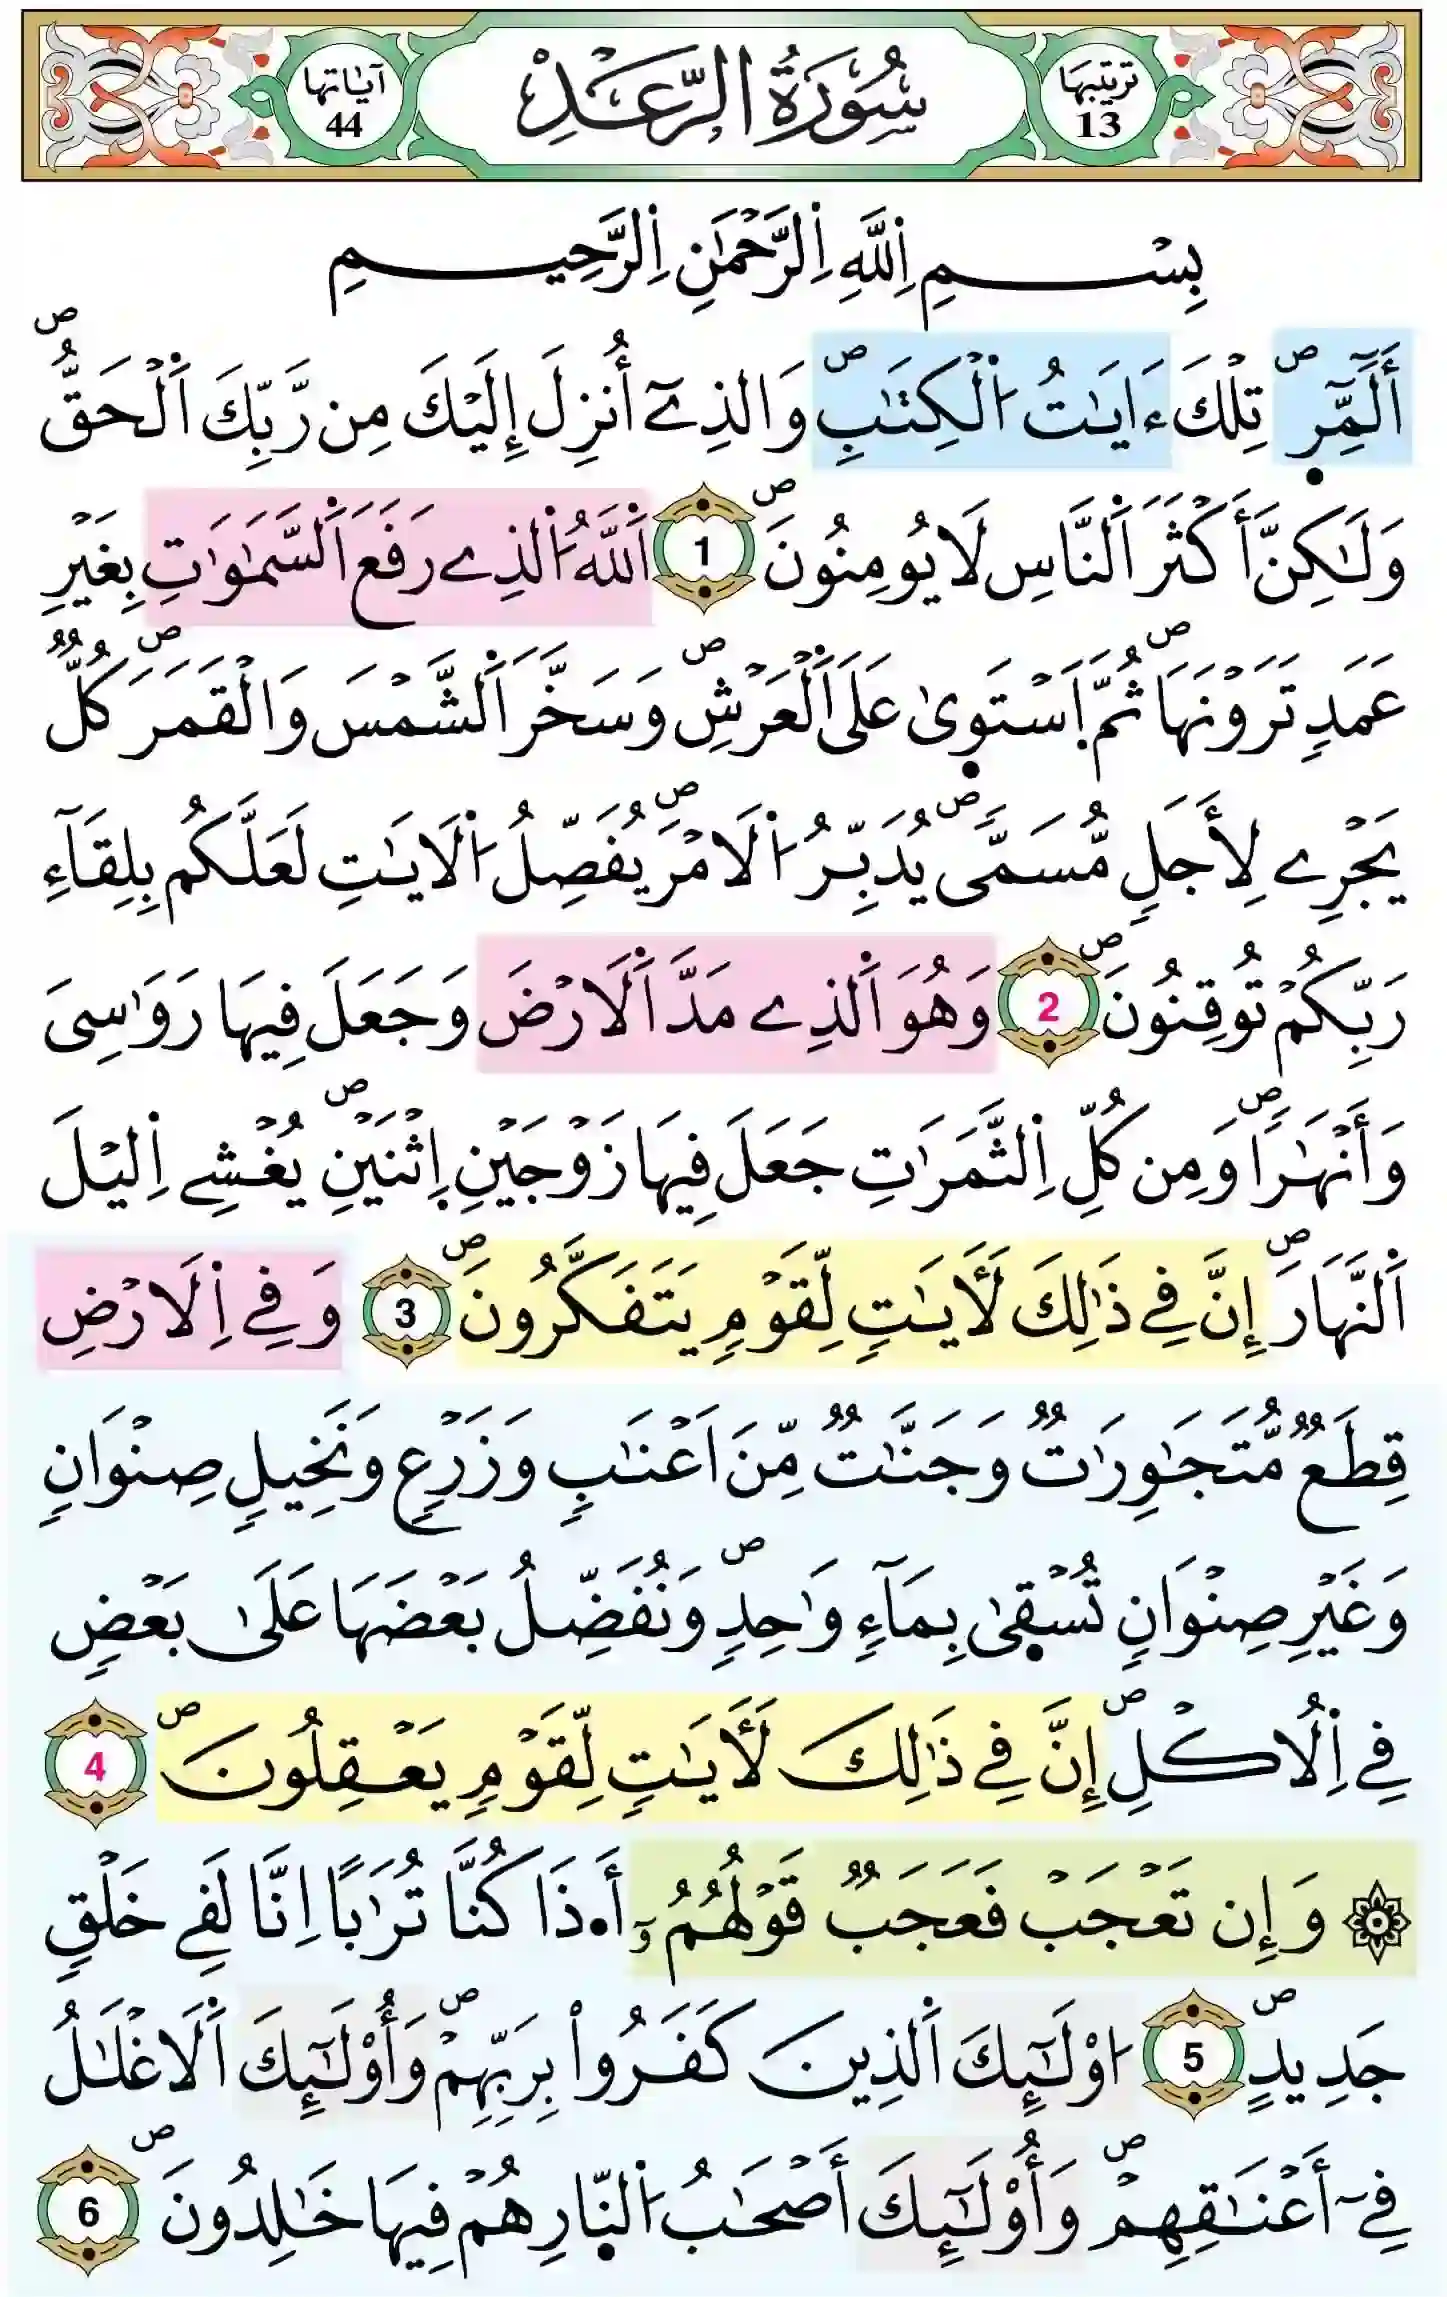 ترتيبها 13 سُورَةُ الرَّعْدِ آياتها 44
بِسْمِ اِ۬للَّهِ اِ۬لرَّحْمَٰنِ اِ۬لرَّحِيمِ
أَلَٓمِّٓرۖ تِلْكَ ءَايَٰتُ اُ۬لْكِتَٰبِۖ وَالذِےٓ أُنزِلَ إِلَيْكَ مِن رَّبِّكَ اَ۬لْحَقُّۖ
وَلَٰكِنَّ أَكْثَرَ اَ۬لنَّاسِ لَا يُومِنُونَۖ 1 اَ۬للَّهُ اُ۬لذِے رَفَعَ اَ۬لسَّمَٰوَٰتِ بِغَيْرِ
عَمَدٖ تَرَوْنَهَاۖ ثُمَّ اَ۪سْتَوٜىٰ عَلَى اَ۬لْعَرْشِۖ وَسَخَّرَ اَ۬لشَّمْسَ وَالْقَمَرَۖ كُلّٞ
يَجْرِے لِأَجَلٖ مُّسَمّيٗۖ يُدَبِّرُ اُ۬لَامْرَۖ يُفَصِّلُ اُ۬لَايَٰتِ لَعَلَّكُم بِلِقَآءِ
رَبِّكُمْ تُوقِنُونَۖ 2 وَهُوَ اَ۬لذِے مَدَّ اَ۬لَارْضَ وَجَعَلَ فِيهَا رَوَٰسِىَ
وَأَنْهَٰراٗۖ وَمِن كُلِّ اِ۬لثَّمَرَٰتِ جَعَلَ فِيهَا زَوْجَيْنِ اِ۪ثْنَيْنِۖ يُغْشِے اِ۬ليْلَ
اَ۬لنَّهَارَۖ إِنَّ فِے ذَٰلِكَ لَأٓيَٰتٖ لِّقَوْمٖ يَتَفَكَّرُونَۖ 3 وَفِے اِ۬لَارْضِ
قِطَعٞ مُّتَجَٰوِرَٰتٞ وَجَنَّٰتٞ مِّنَ اَعْنَٰبٖ وَزَرْعٖ وَنَخِيلٖ صِنْوَانٖ
وَغَيْرِ صِنْوَانٖ تُسْقٜىٰ بِمَآءٖ وَٰحِدٖۖ وَنُفَضِّلُ بَعْضَهَا عَلَىٰ بَعْضٖ
فِے اِ۬لُاكْلِۖ إِنَّ فِے ذَٰلِكَ لَأٓيَٰتٖ لِّقَوْمٖ يَعْقِلُونَۖ 4
۞ وَإِن تَعْجَبْ فَعَجَبٞ قَوْلُهُمُۥٓ أَ۟ذَا كُنَّا تُرَٰباً اِنَّا لَفِے خَلْقٖ
جَدِيدٍۖ 5 ا۟وْلَٰٓئِكَ اَ۬لذِينَ كَفَرُواْ بِرَبِّهِمْۖ وَأُوْلَٰٓئِكَ اَ۬لَاغْلَٰلُ
فِےٓ أَعْنَٰقِهِمْۖ وَأُوْلَٰٓئِكَ أَصْحَٰبُ اُ۬لنّٜارِ هُمْ فِيهَا خَٰلِدُونَۖ 6